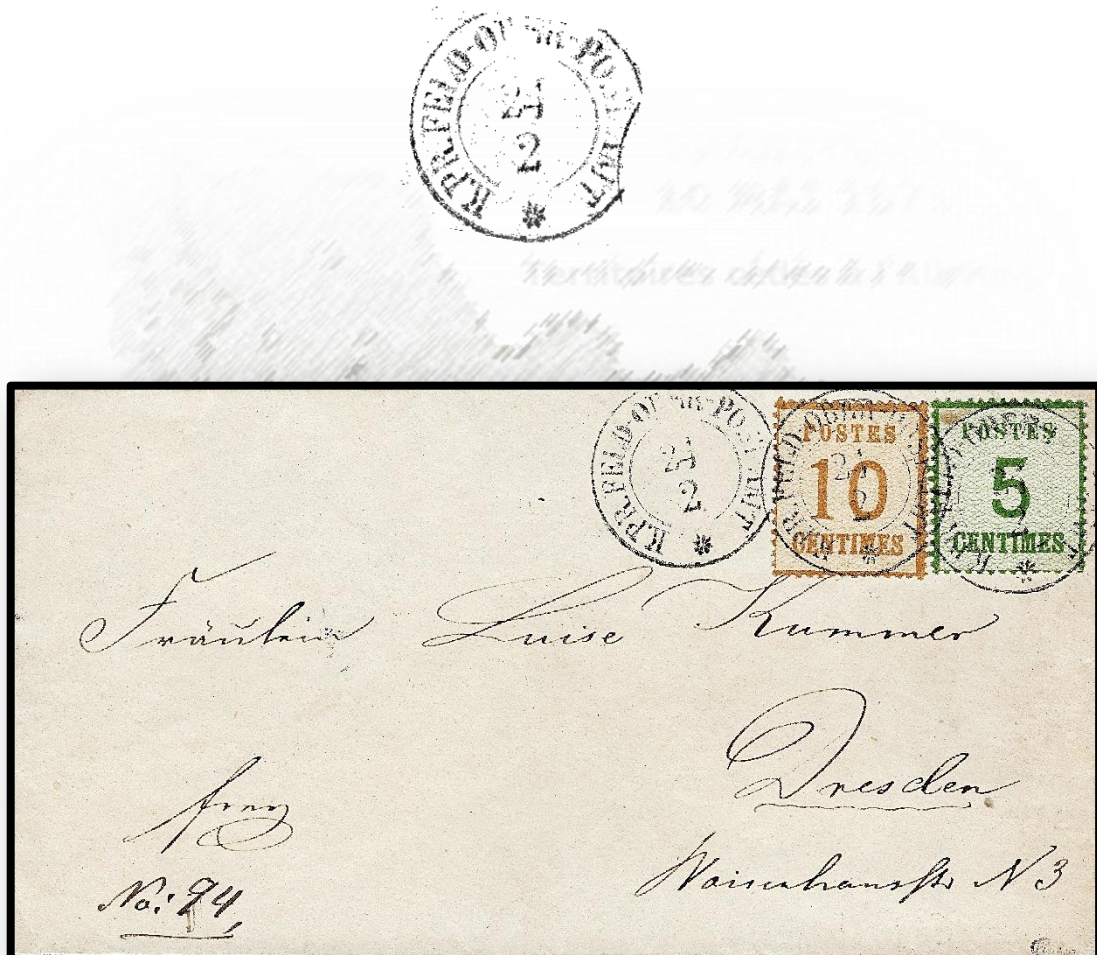 K.PR.FELD-OBER-POST-AMT
24
2
K.PR.FELD-OBER-POST-AMT
24
2
POSTES
10
CENTIMES
POSTES
5
CENTIMES
Fräulein Luise Kummer
Dresden
Waisenhausstr N 3
frey
No: 94